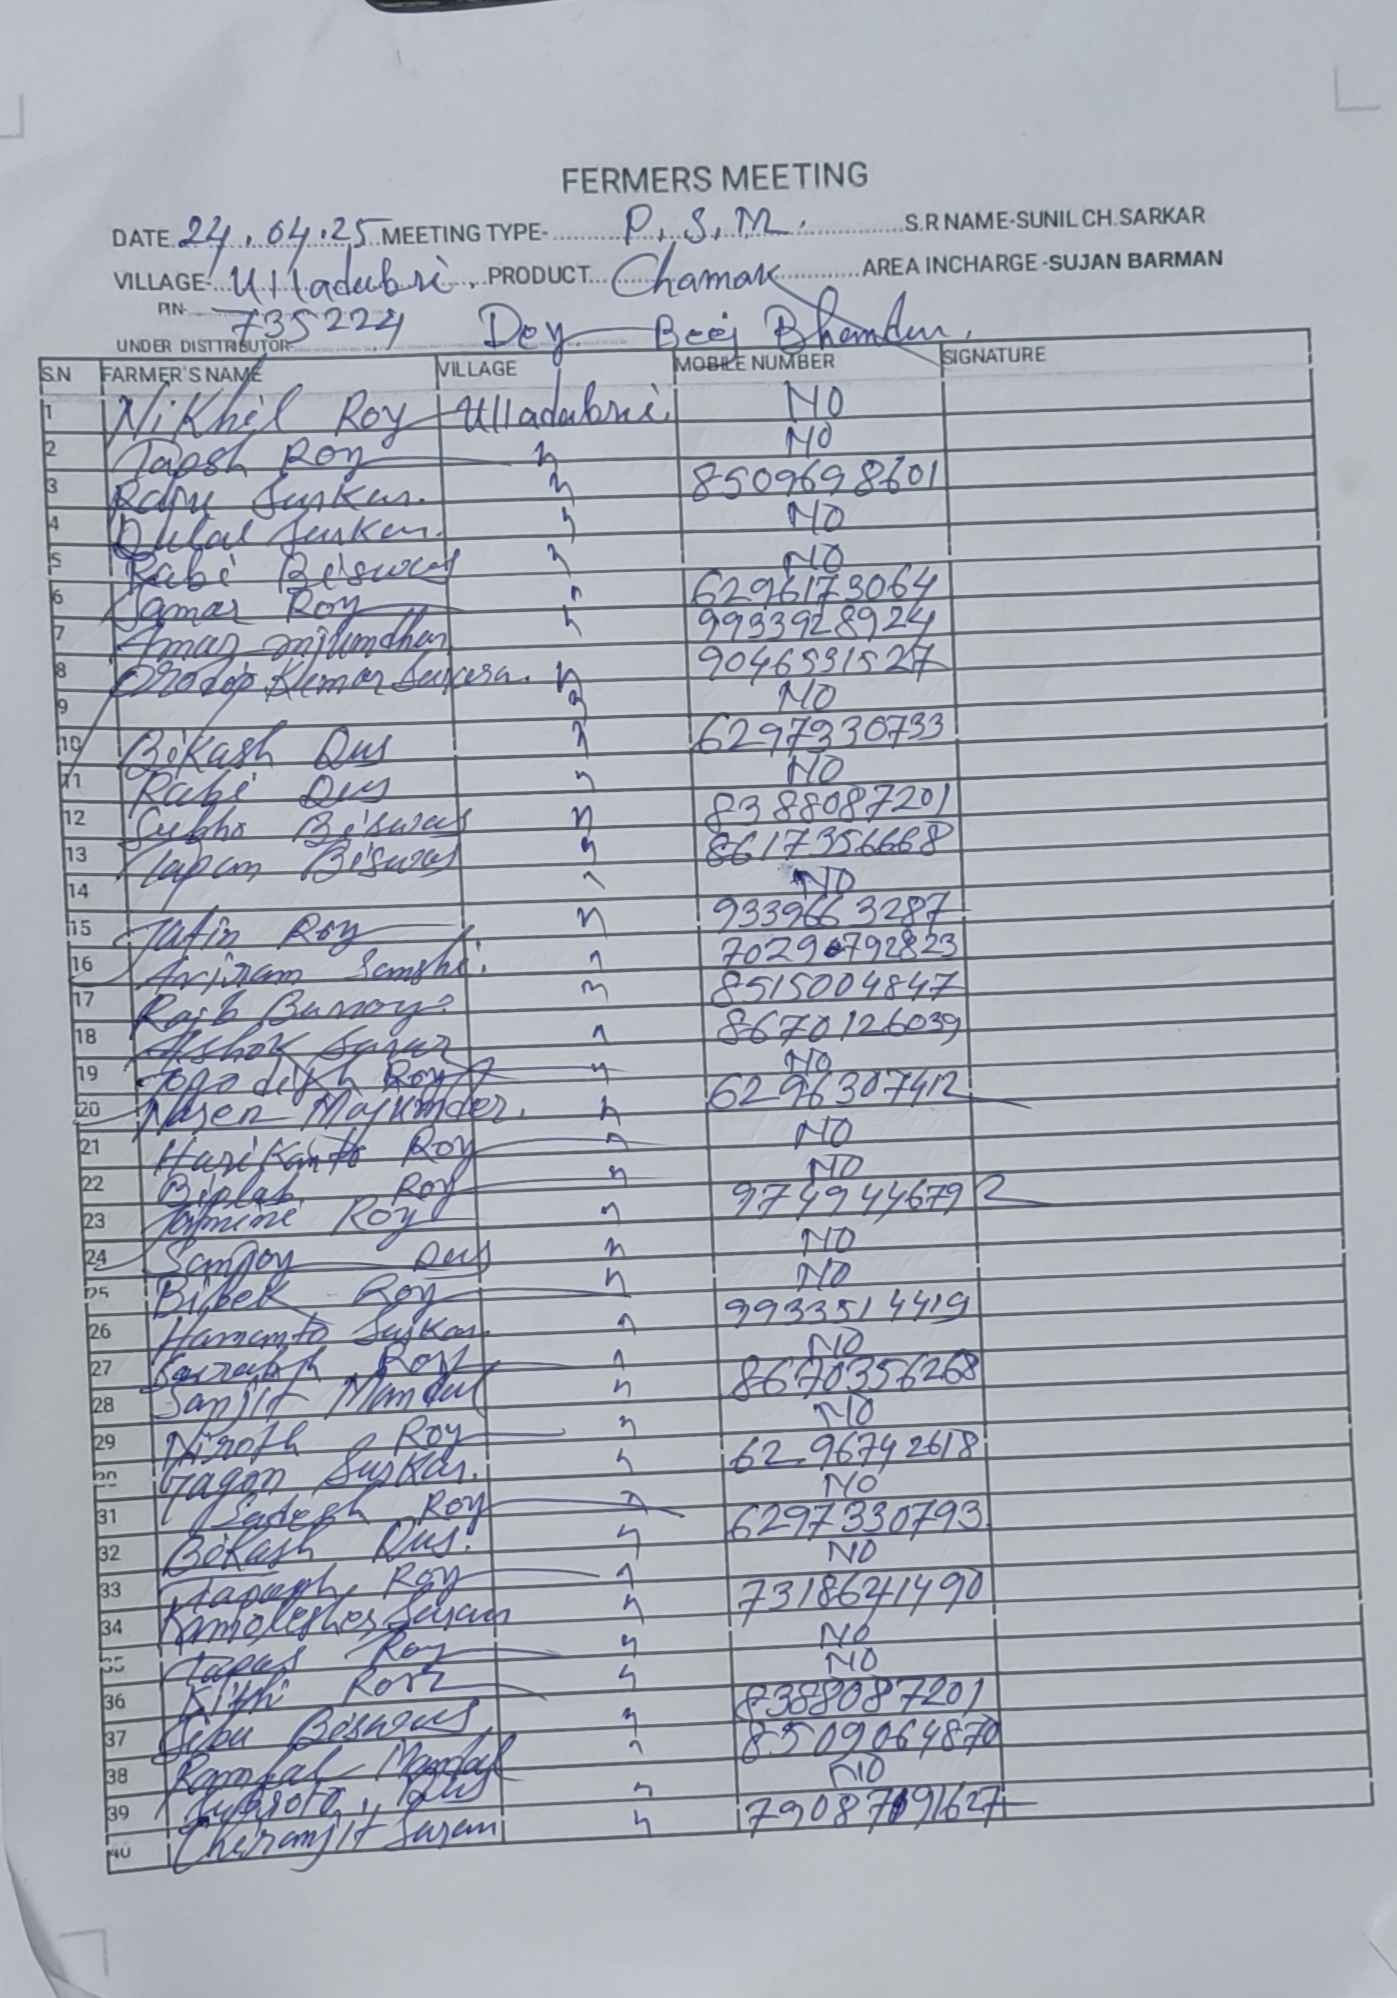 FERMERS MEETING
DATE 24.04.25 MEETING TYPE- P.S.M. S.R NAME-SUNIL CH.SARKAR
VILLAGE- Ulladabri, PRODUCT Chamak AREA INCHARGE-SUJAN BARMAN
PIN- 735224
UNDER DISTTRIBUTOR- Dey Beej Bhandar.
S.N FARMER'S NAME VILLAGE MOBILE NUMBER SIGNATURE
1 Nikhil Roy Ulladabri NO
2 Taposh Roy " NO
3 Raju Sarkar. " 8509698601
4 Dulal Sarkar. " NO
5 Rabi Biswas " NO
6 Samar Roy " 6296173064
7 Amar " 9933928924
8 Prodip Kumar " 9046531527
9 " NO
10 Bikash Das " 6297330733
11 Rabi Das " NO
12 Subho Biswas " 8388087201
13 Tapan Biswas " 8617356668
14 " NO
15 Jatin Roy " 9339663287
16 " 7029 792823
17 " 8515004847
18 Ashok " 8670126039
19 Roy " NO
20 Naren Majumder. " 6296307412
21 Harikanto Roy " NO
22 Biplab Roy " NO
23 Jamini Roy " 9749446792
24 Sanjoy Das " NO
25 Bibek Roy " NO
26 Sarkar. " 9933514419
27 Roy " NO
28 Sanjit Mandal " 8670356268
29 Niroth Roy " NO
30 Gagon Sarkar. " 6296742618
31 Roy " NO
32 Bikash Das. " 6297330793
33 Roy " NO
34 " 7318641490
35 Tapas Roy " NO
36 " NO
37 Sibu Biswas " 8388087201
38 Mandal " 8509064870
39 Das " NO
40 Chiranjit " 79087 91627